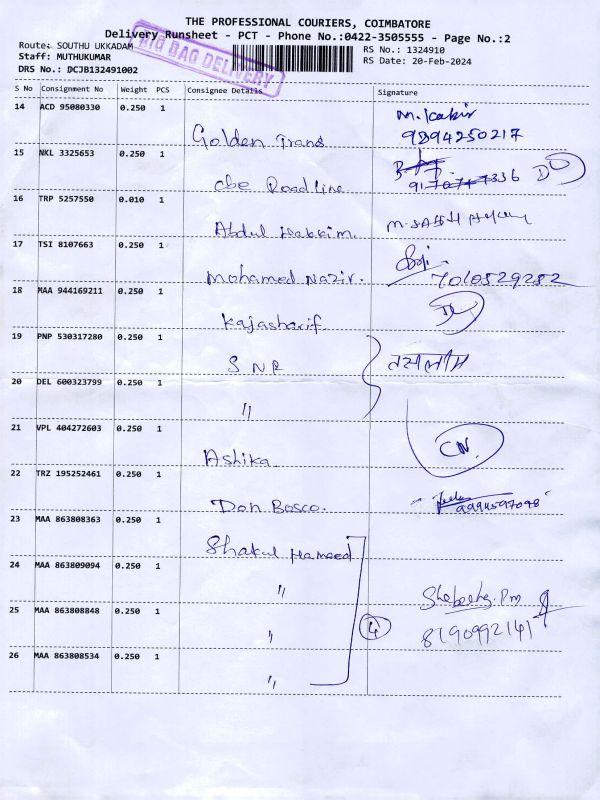 THE PROFESSIONAL COURIERS, COIMBATORE
Delivery Runsheet - PCT - Phone No.:0422-3505555 - Page No.:2
Route: SOUTHU UKKADAM
BIG BAG DELIVERY
RS No.: 1324910
Staff: MUTHUKUMAR
RS Date: 20-Feb-2024
DRS No.: DCJB132491002
S No Consignment No Weight PCS Consignee Details Signature
14 ACD 95080330 0.250 1 Golden Trans M. Kabir
9894250217
15 NKL 3325653 0.250 1 cbe Roadline
16 TRP 5257550 0.010 1 Abdul Hakkim.
17 TSI 8107663 0.250 1 Mohamed Nazir. 7010529282
18 MAA 944169211 0.250 1 Kajasharif
19 PNP 530317280 0.250 1 S N R
20 DEL 600323799 0.250 1 "
21 VPL 404272603 0.250 1 Ashika CN.
22 TRZ 195252461 0.250 1 Don Bosco.
23 MAA 863808363 0.250 1 Shakul Hameed
24 MAA 863809094 0.250 1 "
25 MAA 863808848 0.250 1 " 4 8190992141
26 MAA 863808534 0.250 1 "